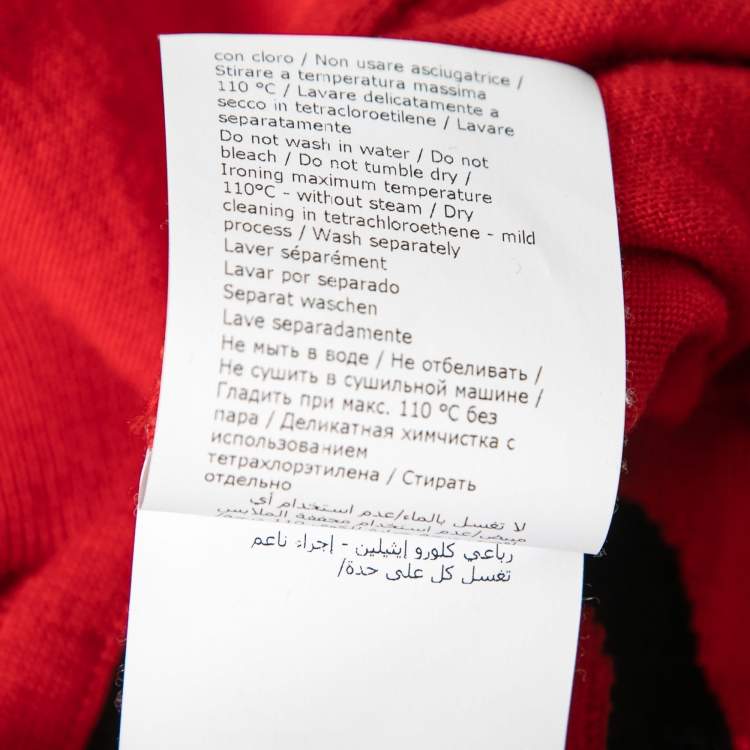 con cloro / Non usare asciugatrice /
Stirare a temperatura massima
110 °C / Lavare delicatamente a
secco in tetracloroetilene / Lavare
separatamente
Do not wash in water / Do not
bleach / Do not tumble dry /
Ironing maximum temperature
110°C - without steam / Dry
cleaning in tetrachloroethene - mild
process / Wash separately
Laver séparément
Lavar por separado
Separat waschen
Lave separadamente
Не мыть в воде / Не отбеливать /
Не сушить в сушильной машине /
Гладить при макс. 110 °C без
пара / Деликатная химчистка с
использованием
тетрахлорэтилена / Стирать
отдельно
لا تغسل بالماء/عدم استخدام أي
مبيض/عدم استخدام مجففة الملابس
رباعي كلورو إيثيلين - إجراء ناعم
تغسل كل على حدة/